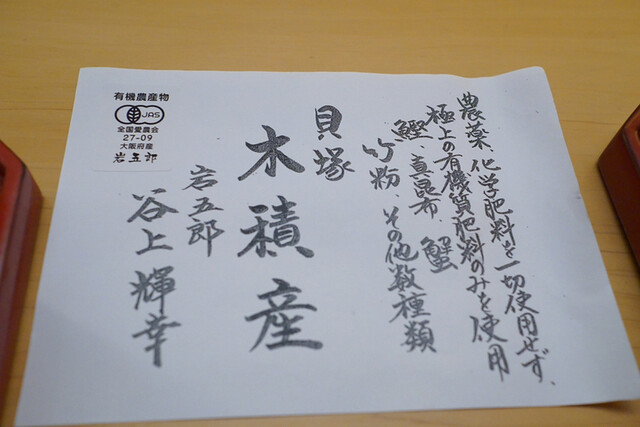 農薬、化学肥料を一切使用せず、
極上の有機質肥料のみを使用
鰹、真昆布、蟹
竹粉、その他数種類
貝塚
木積産
岩五郎
谷上輝幸
有機農産物
JAS
全国愛農会
27-09
大阪府産
岩五郎